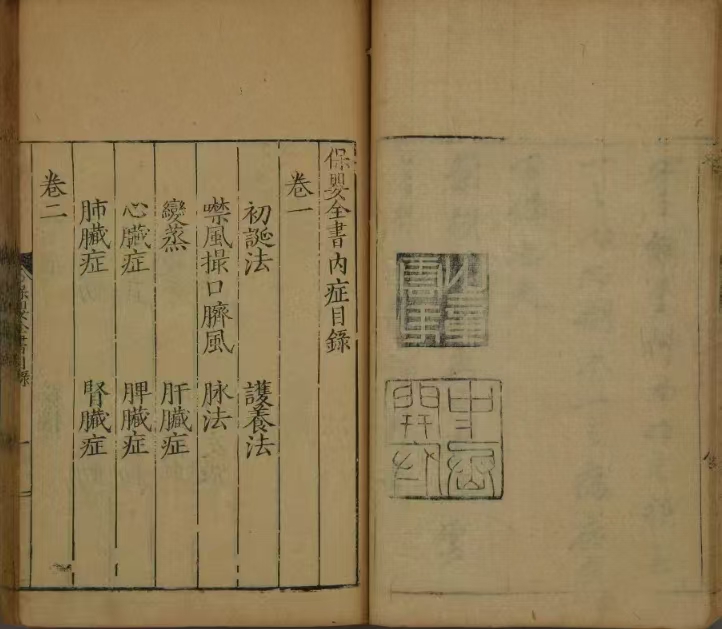 保嬰全書內症目錄
卷一
初誕法 護養法
噤風撮口臍風 脉法
變蒸 肝臟症
心臟症 脾臟症
肺臟症 腎臟症
卷二